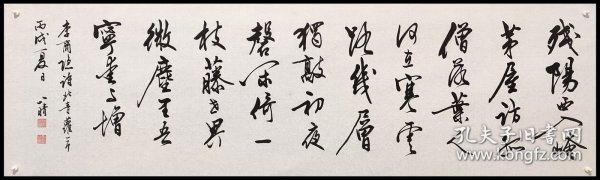 殘陽西入崦
茅屋訪孤
僧落葉人
何在寒雲
路幾層
獨敲初夜
磬閑倚一
枝藤世界
微塵里吾
寧愛与憎
李商隱詩北青蘿
丙戌夏日
孔夫子旧书网
book.kongfz.com